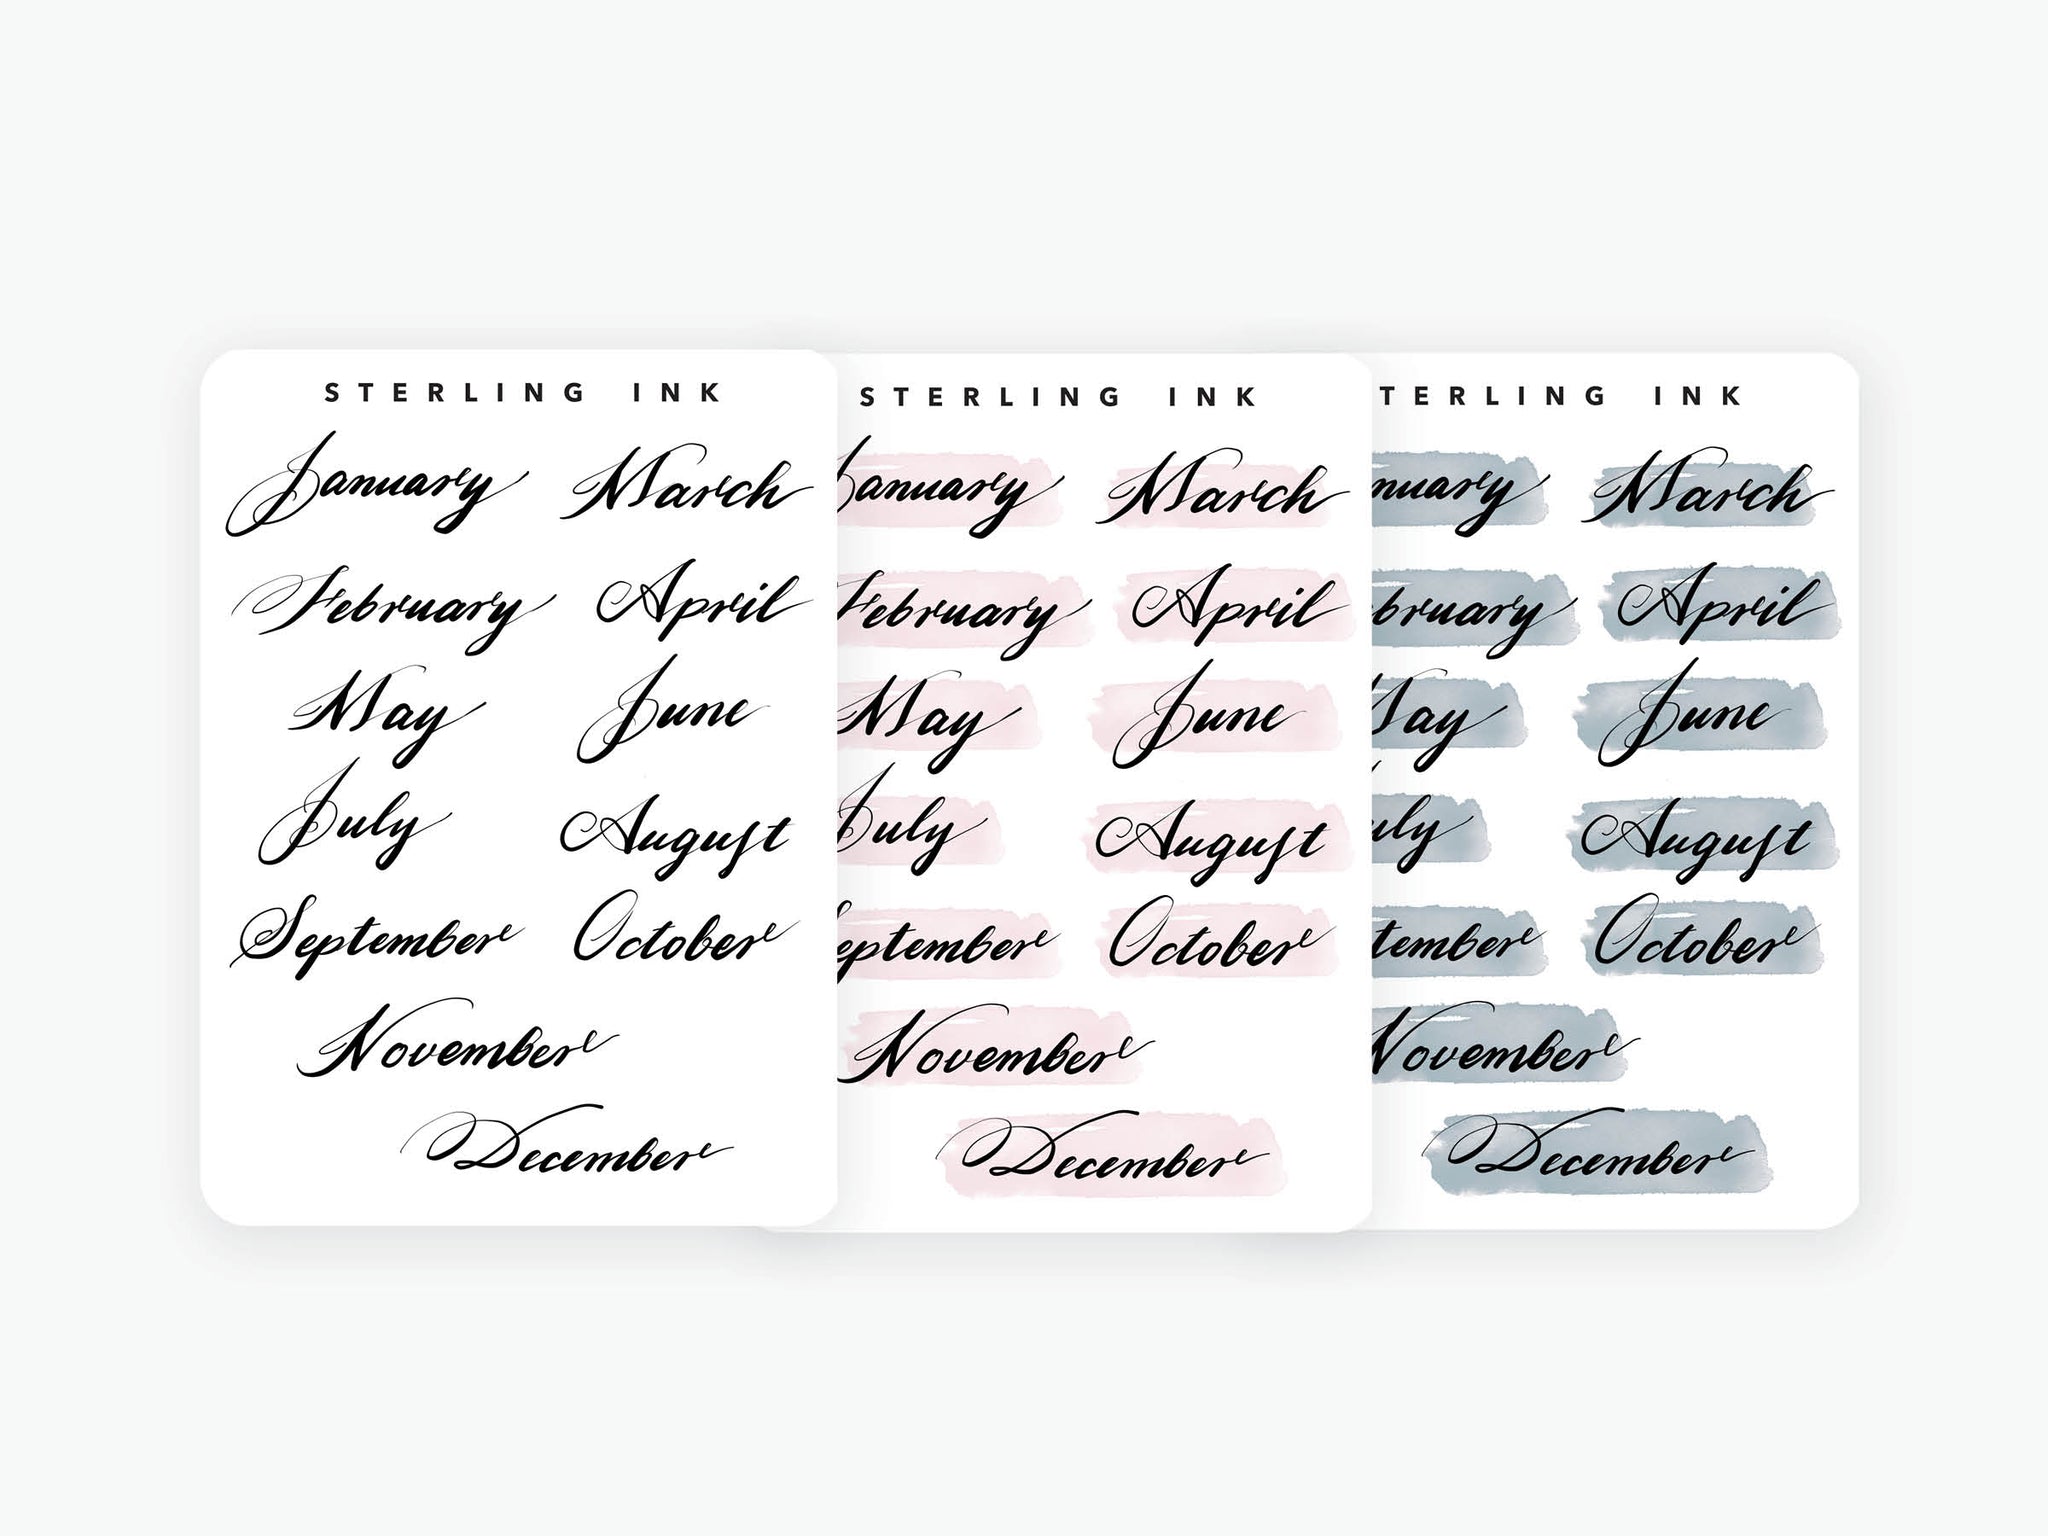 STERLING INK
January March
February April
May June
July August
September October
November
December
STERLING INK
January March
February April
May June
July August
September October
November
December
TERLING INK
nuary March
bruary April
May June
uly August
tember October
November
December